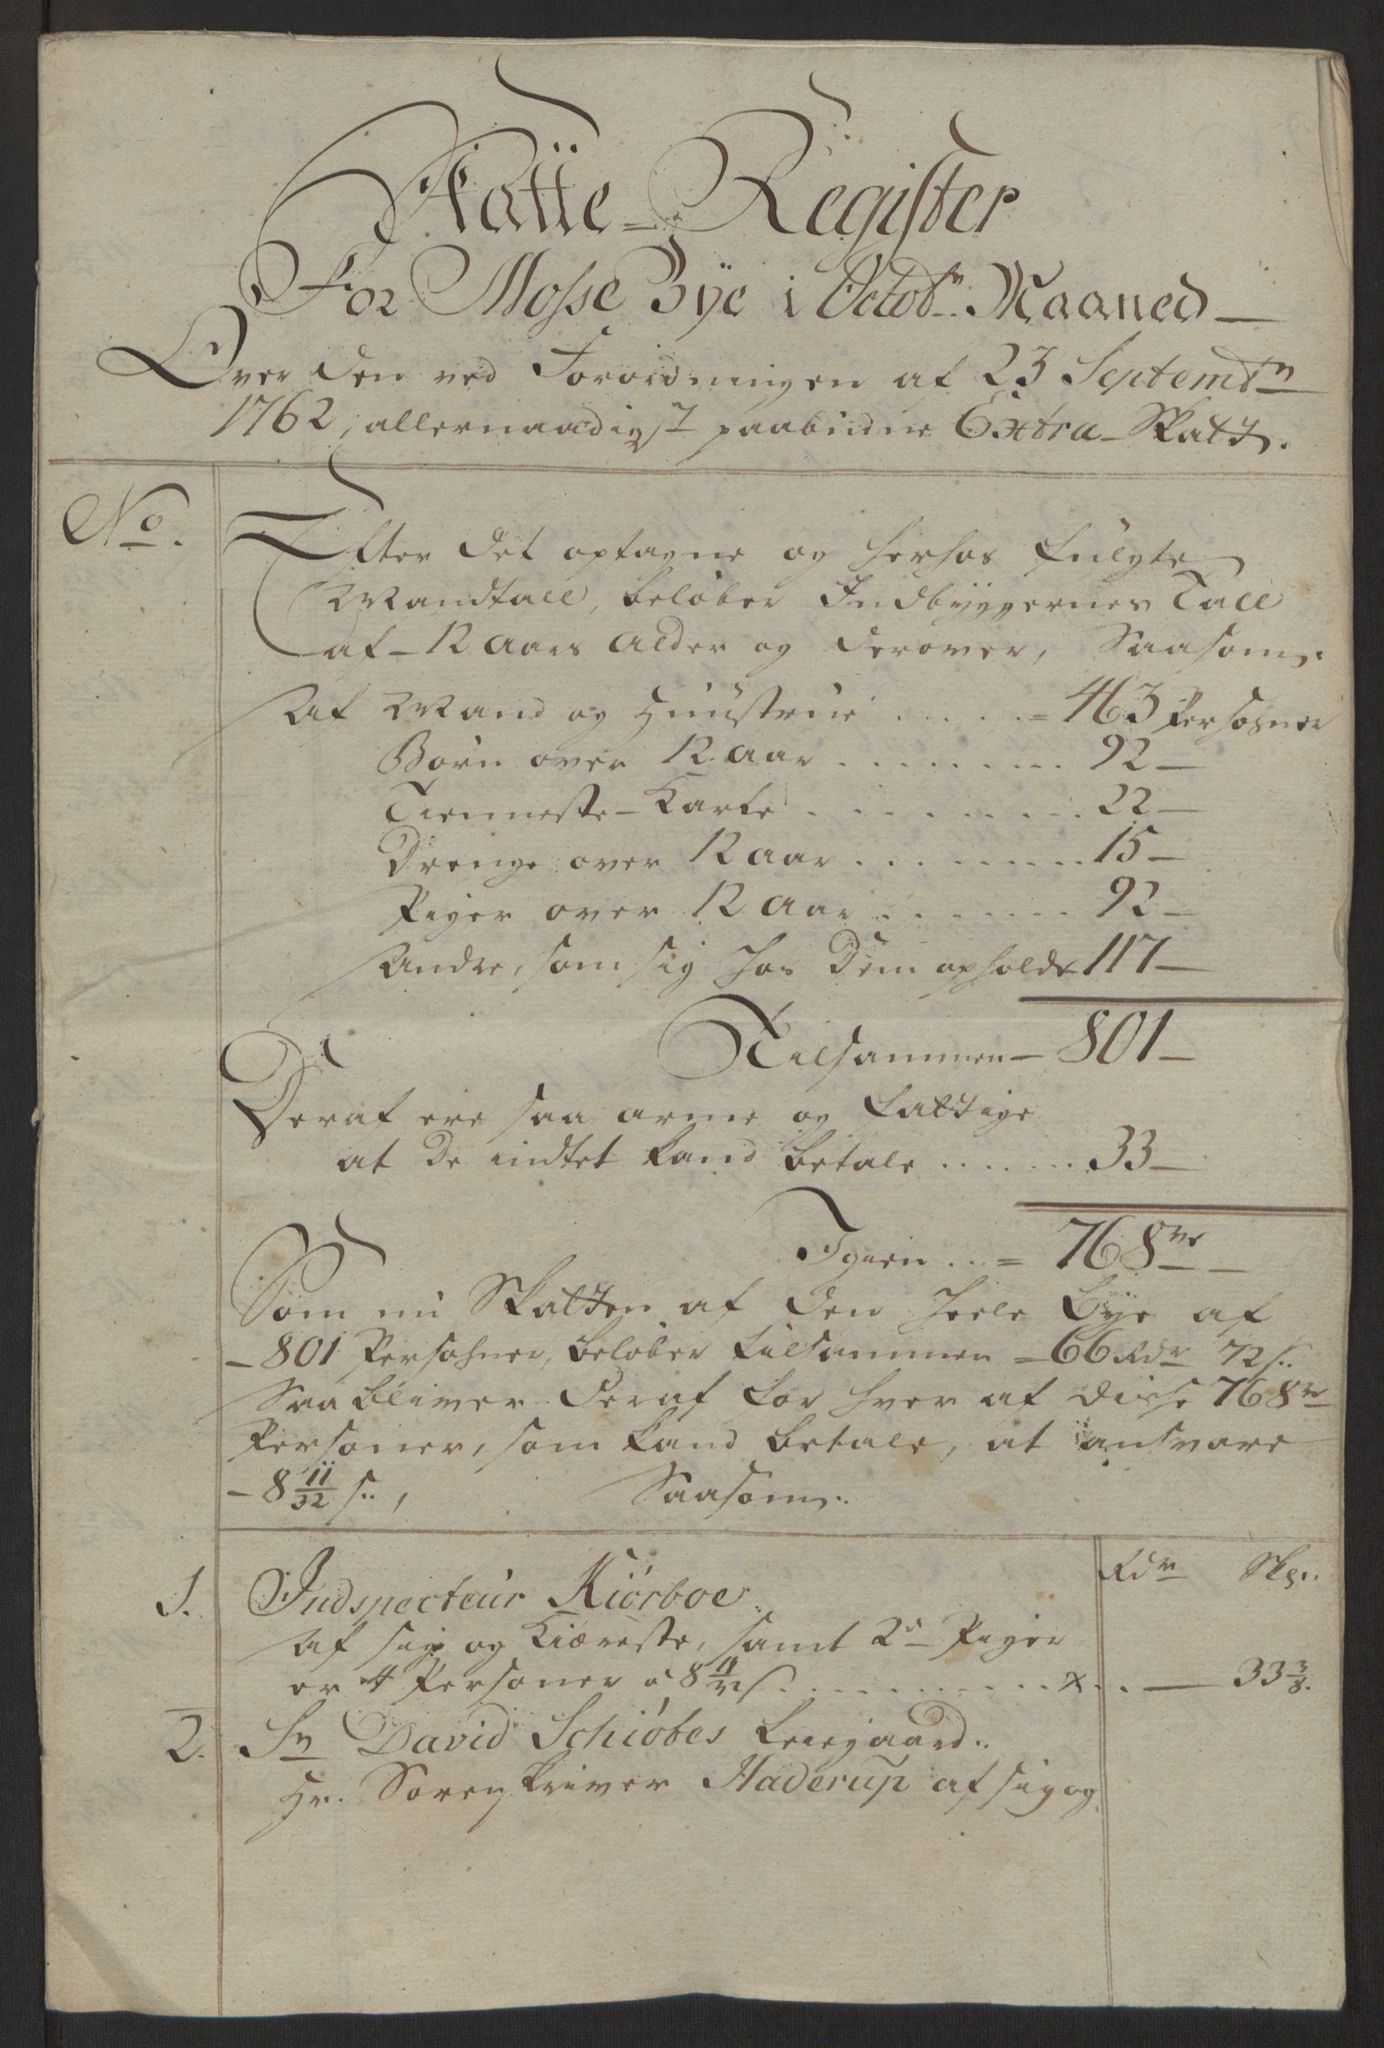 Skatte-Register
For Mosse Bÿe i Octobr. Maaned
Over den ved Forordningen af 23 Septembr
1762, allernaadigst paabudne Extra-Skatt.
No.
Efter det optagne og herhos fulgte
Mandtall, beløber Indbÿggernes Tall
af 12 Aars Alder og derover, Saasom.
Af Mand og Huustrue . . . . . = 463 Persohner
Børn over 12 Aar . . . . . . . . . 92 —
Tienneste-Karle . . . . . . . . . . 22 —
Drenge over 12 Aar . . . . . . . . 15 —
Piger over 12 Aar . . . . . . . 92 —
Andre, som sig hos Dem opholde 117 —
Tilsammen — 801 —
Deraf ere saa arme og fattige
at De indtet kand betale . . . . . . . 33 —
Igien . . = 768 —
Som nu Skatten af den heele Bÿe af
— 801 Persohner, beløber tilsammen = 66 Rdr 72 s.
Saa bliver deraf for hver af disse 768
Personer, som kand betale, at ansvare
— 8 11/32 s., Saasom.
Rdr Sk.
1. Indspecteur Kiørboe.
Af sig og Kiæreste, samt 2 Piger
er 4 Personer à 8 11/32 s. . . . . . . . . . x . . — 33 3/8.
2. Sr David Schiøtes Leiegaard.
Hr. Sorenskriver Haderup af sig og